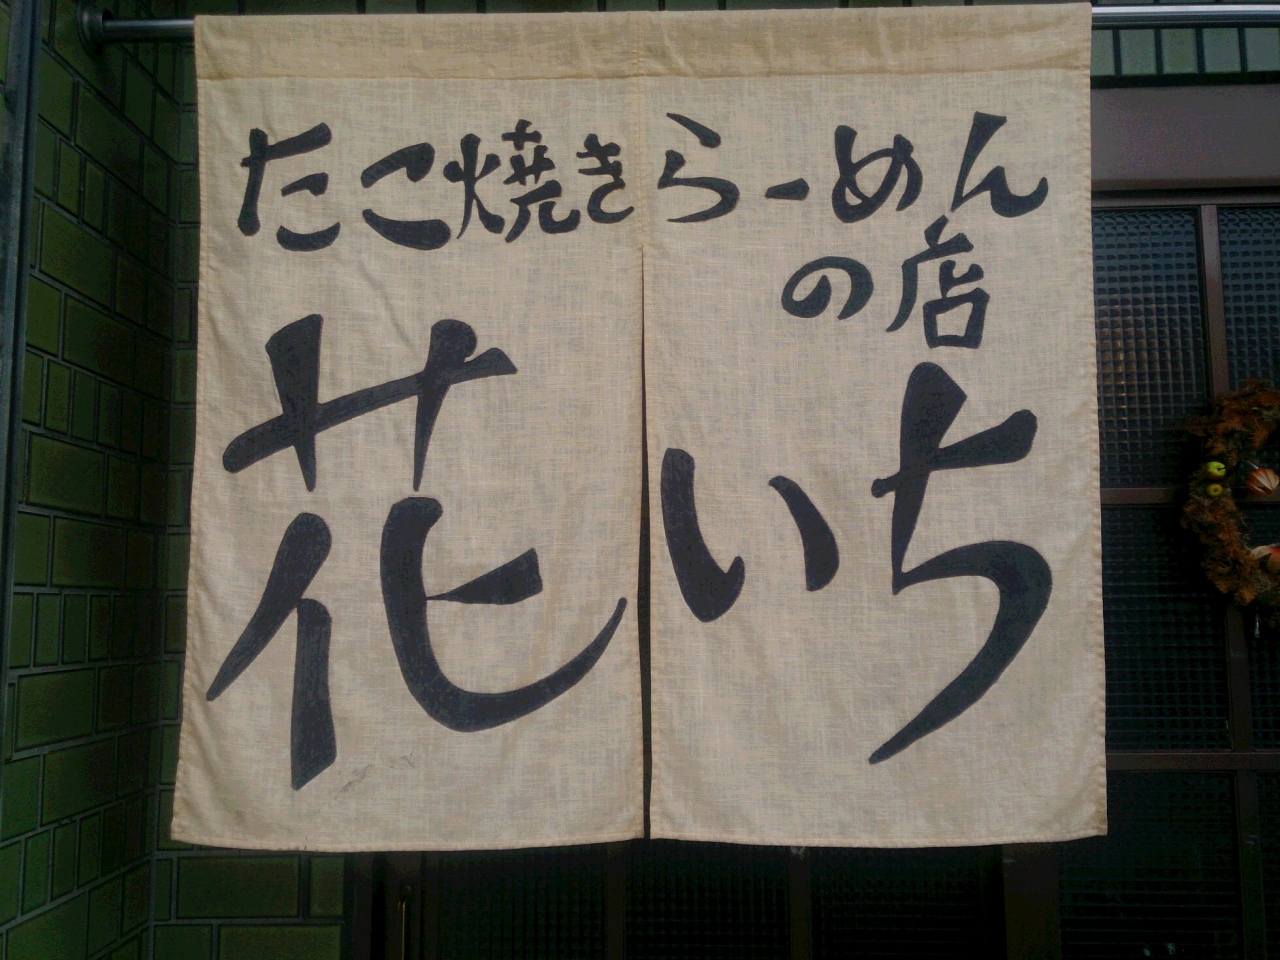 たこ焼きらーめん
の店
花いち